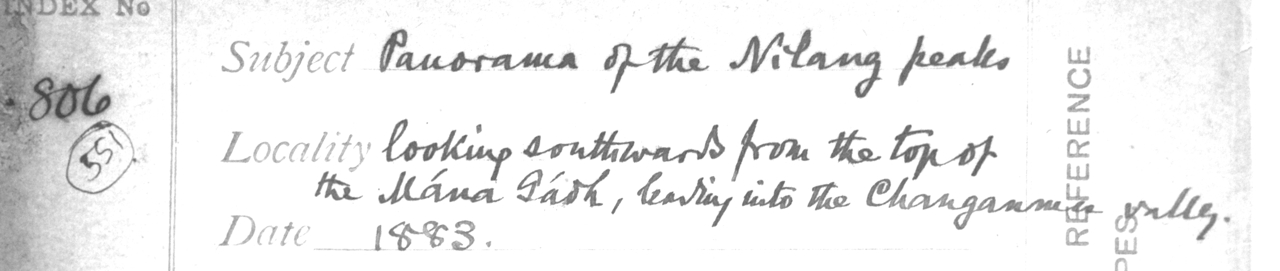 INDEX No
806
551
Subject Panorama of the Nilang peaks
Locality looking southwards from the top of
the Mána Gádh, leading into the valley.
Date 1883.
REFERENCE